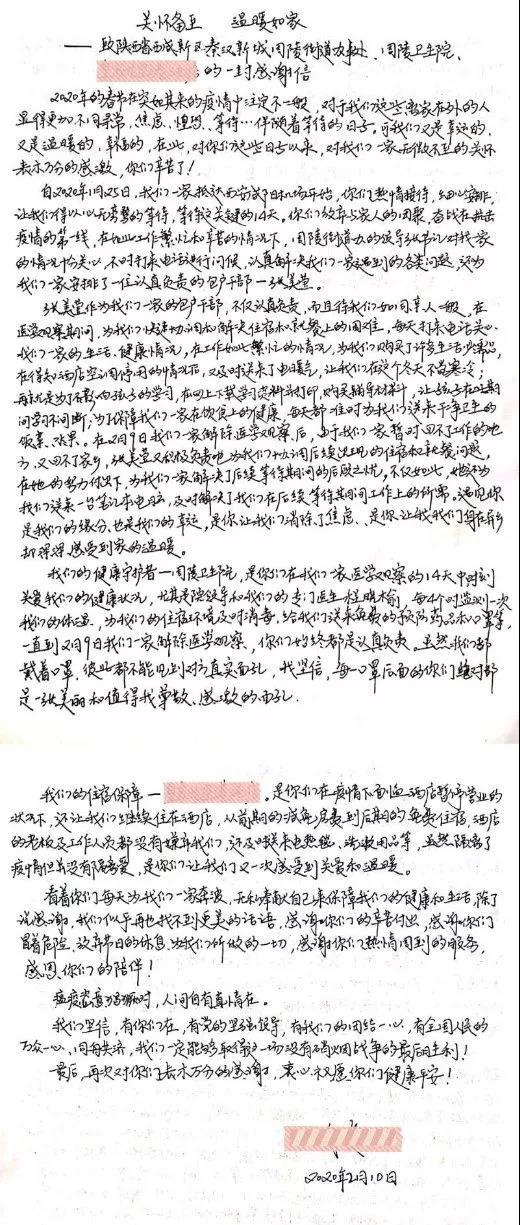 关怀备至 温暖如家
——致陕西省西咸新区秦汉新城周陵街道办事处、周陵卫生院、
的一封感谢信
2020年的春节在突如其来的疫情中注定不一般，对于我们这些离家在外的人
显得更加不同寻常，焦虑、惶恐、等待…伴随着等待的日子。可我们又是幸运的，
又是温暖的，幸福的，在此，对你们这些日子以来，对我们一家无微不至的关怀
表示万分的感激，你们辛苦了！
自2020年1月25日，我们一家抵达西安咸阳机场开始，你们热情接待，细心安排，
让我们得以以无牵挂的等待，等待这关键的14天。你们放弃与家人的团聚，奋战在抗击
疫情的第一线，在如此工作繁忙和辛苦的情况下，周陵街道办的领导张书记对我家
的情况十分关心，不时打来电话进行问候，认真解决我们一家遇到的各类问题，还为
我们一家安排了一位认真负责的包户干部—张美莹。
张美莹作为我们一家的包户干部，不仅认真负责，而且待我们如同亲人一般，在
医学观察期间，为我们快速协调和解决住宿和就餐上的困难，每天打来电话关心
我们一家的生活、健康情况，在工作如此繁忙的情况，为我们购买了许多生活必需品，
在得知酒店空调停用的情况后，又及时送来了电暖气，让我们在这个冬天不再寒冷；
再就是为了不影响孩子的学习，在网上下载学习资料并打印，购买辅导材料，让孩子在此期
间学习不间断；为了保障我们一家在饮食上的健康，每天都准时为我们送来干净卫生的
饭菜、水果。在2月9日我们一家解除医学观察后，由于我们一家暂时回不了工作的地
方，又回不了家乡，张美莹又积极负责地为我们协调后续出现的住宿和就餐问题，
在她的努力付出下，为我们一家解决了后续等待期间的后顾之忧，不仅如此，她还为
我们送来一台笔记本电脑，及时解决了我们在后续等待期间工作上的所需。遇见你
是我们的缘分，也是我们的幸运，是你让我们消除了焦虑、是你让我们身在异乡
却深深感受到家的温暖。
我们的健康守护者—周陵卫生院，是你们在我们一家医学观察的14天中时刻
关爱我们的健康状况，尤其是院领导和我们的专门医生任朋榆，每4个时监测一次
我们的体温，为我们的住宿环境及时消毒，给我们送来免费的预防药品和口罩等，
一直到2月9日我们一家解除医学观察，你们始终都是认真负责。虽然我们都
戴着口罩，彼此都不能见到对方真实面孔，我坚信，每一口罩后面的你们绝对都
是一张美丽和值得我尊敬、感激的面孔。
我们的住宿保障— 。是你们在疫情下面临酒店暂停营业的
状况下，还让我们继续住在酒店，从前期的减免房费到后期的免费住宿，酒店
的老板及工作人员都没有嫌弃我们，还及时送来电热毯、洗漱用品等，虽然隔离了
疫情但并没有隔离爱，是你们让我们又一次感受到关爱和温暖。
看着你们每天为我们一家奔波，无私奉献自己来保障我们的健康和生活，除了
说感谢，我们似乎再也找不到更美的话语，感谢你们的辛苦付出，感谢你们
冒着危险、放弃节日的休息为我们所做的一切，感谢你们热情周到的服务，
感恩你们的陪伴！
瘟疫蓄意弥漫时，人间自有真情在。
我们坚信，有你们在，有党的坚强领导，有我们的团结一心，有全国人民的
万众一心、同舟共济，我们一定能够取得这一场没有硝烟战争的最后胜利！
最后，再次对你们表示万分的感谢，衷心祝愿你们健康平安！
2020年2月10日